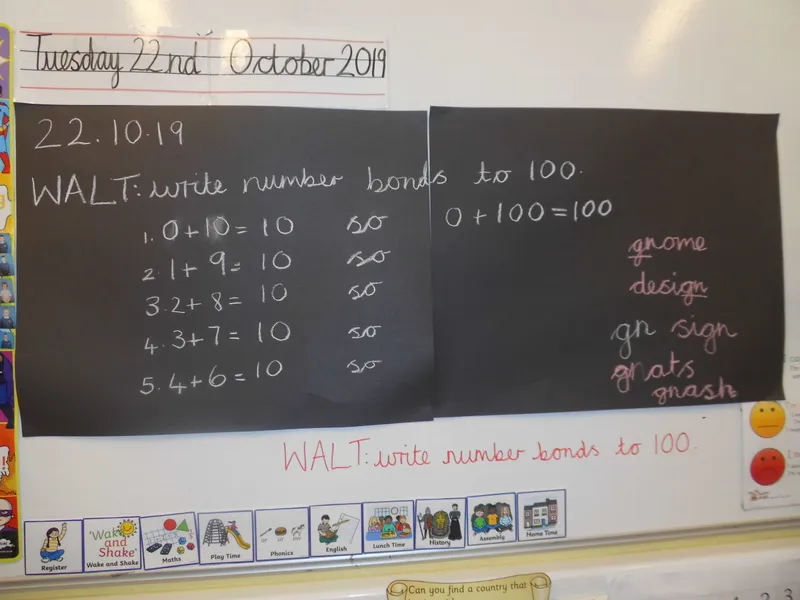 Tuesday 22nd October 2019
22.10.19
WALT: write number bonds to 100.
1. 0+10= 10 so 0+100=100
2. 1+ 9= 10 so
3. 2+ 8= 10 so
4. 3+7= 10 so
5. 4+6= 10 so
gnome
design
gn sign
gnats
gnash
WALT: write number bonds to 100.
Register
'Wake and Shake'
Wake and Shake
Maths
Play Time
Phonics
English
Lunch Time
History
Assembly
Home Time
Can you find a country that